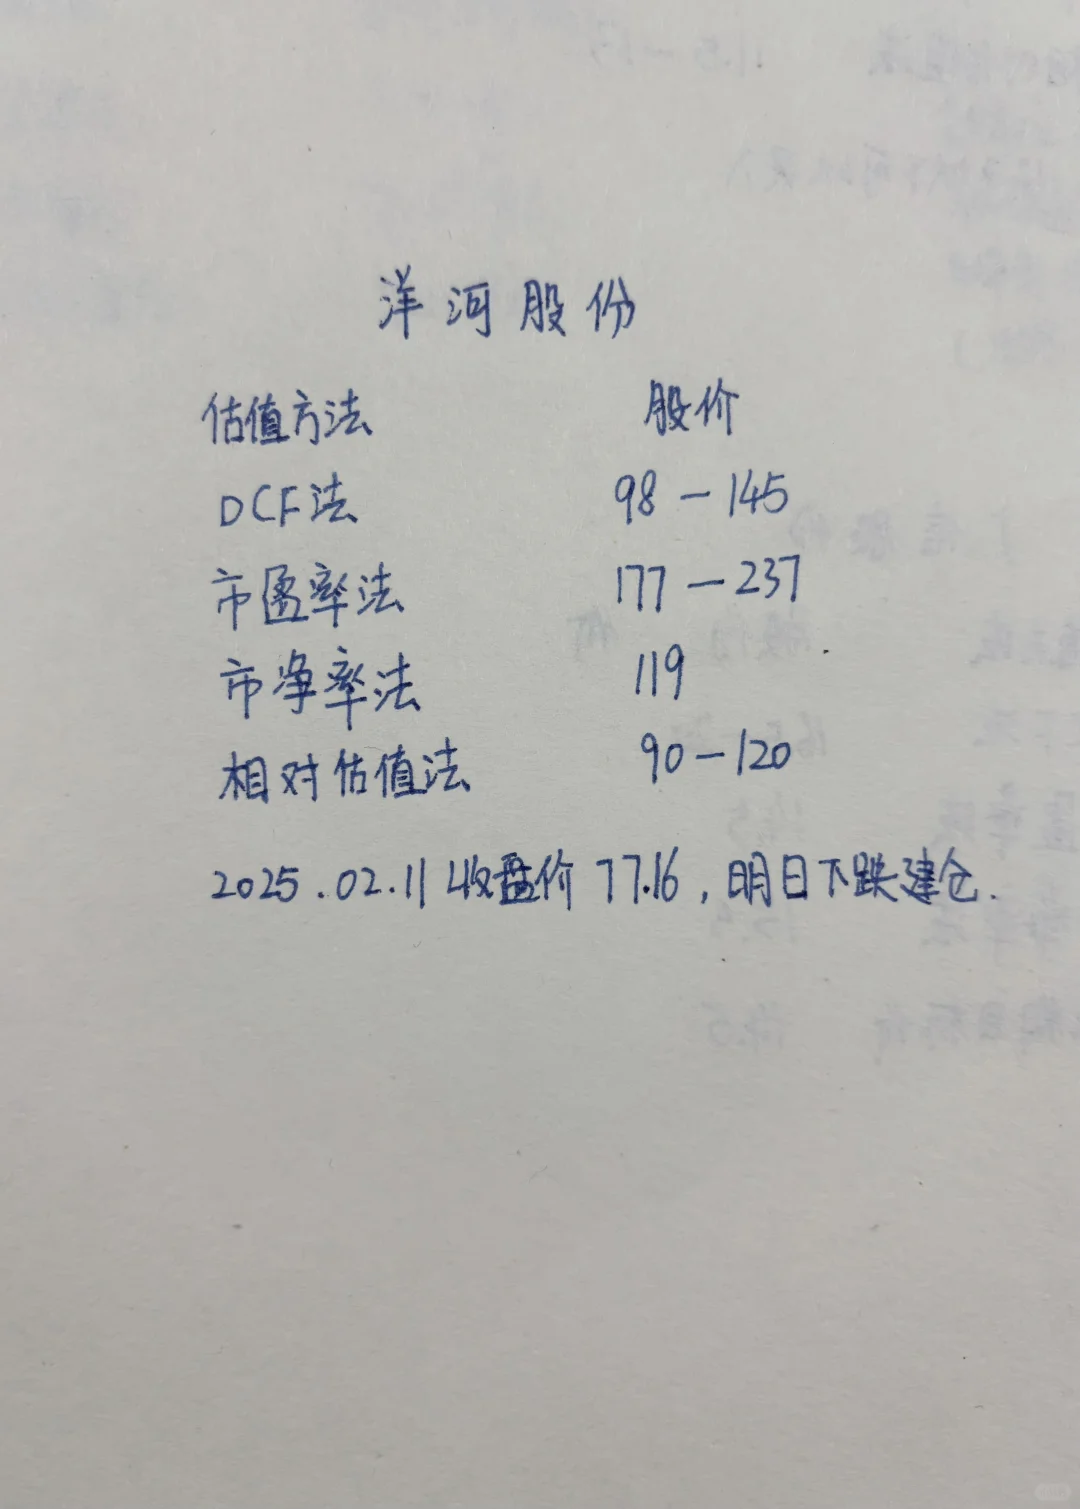 洋河股份
估值方法 股价
DCF法 98－145
市盈率法 177－237
市净率法 119
相对估值法 90－120
2025.02.11收盘价77.16，明日下跌建仓.